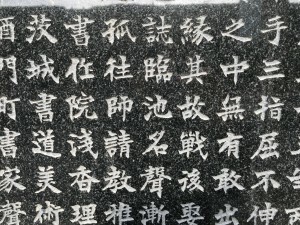 手三指屈不伸
之中無有敢出
縁其故戦後娶
誌臨池名聲漸
孤徃師請教雅
書任院浅香理
茨城書道美術
酒門町書家聲